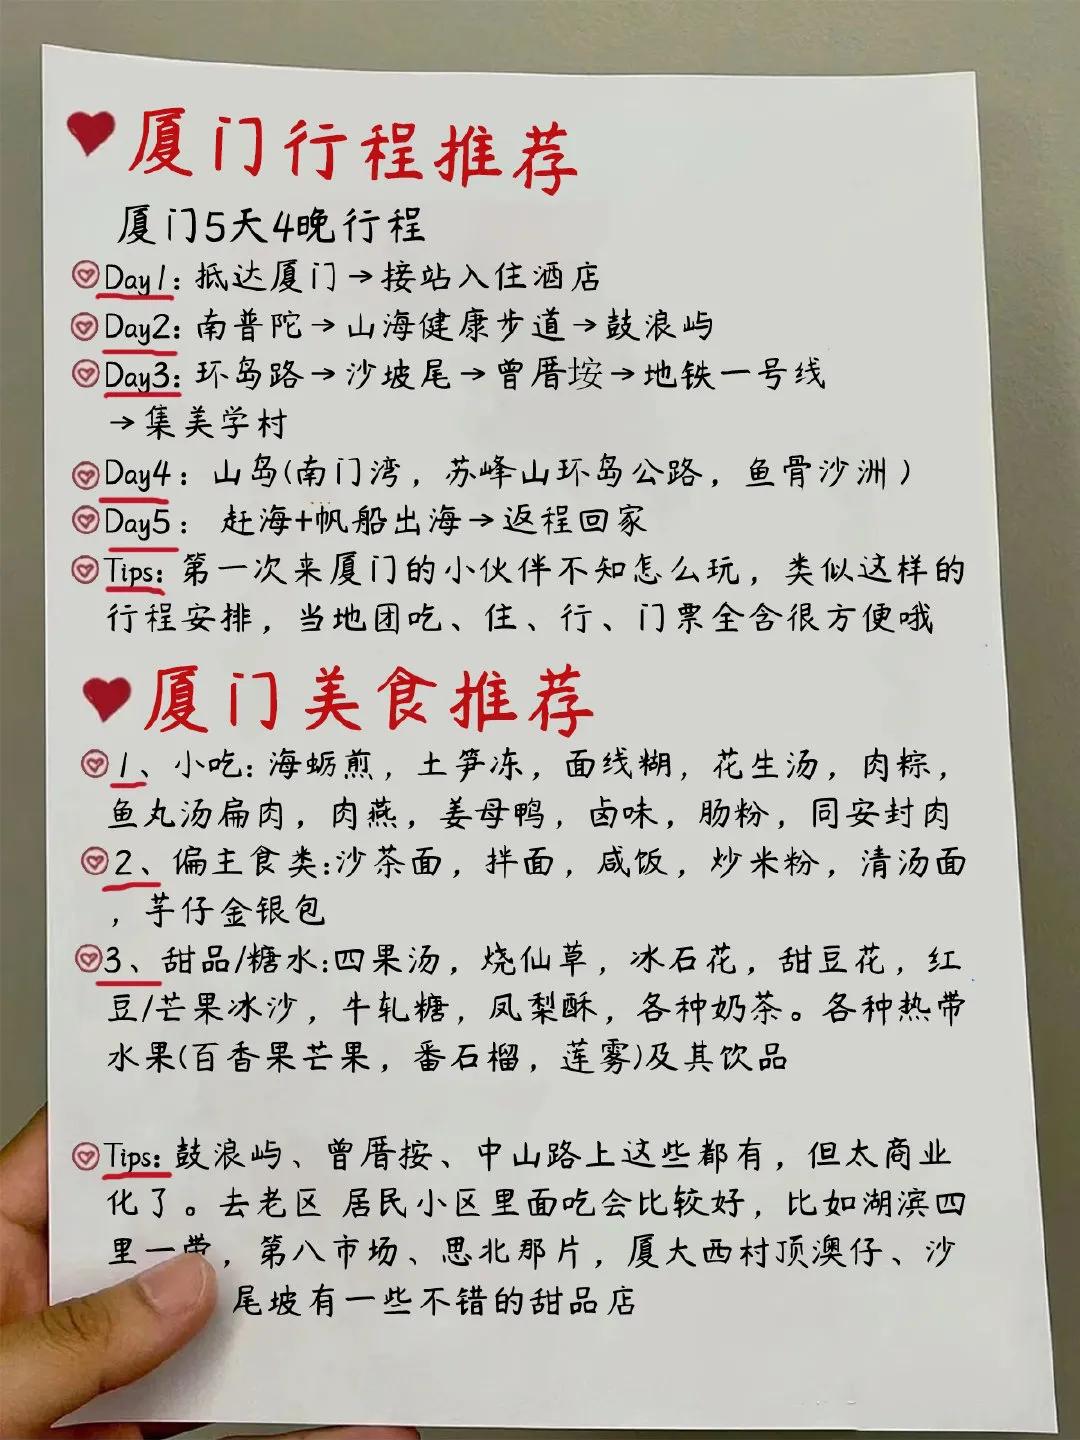 厦门行程推荐
厦门5天4晚行程
Day1：抵达厦门→接站入住酒店
Day2：南普陀→山海健康步道→鼓浪屿
Day3：环岛路→沙坡尾→曾厝垵→地铁一号线
→集美学村
Day4：山岛(南门湾，苏峰山环岛公路，鱼骨沙洲）
Day5： 赶海+帆船出海→返程回家
Tips：第一次来厦门的小伙伴不知怎么玩，类似这样的
行程安排，当地团吃、住、行、门票全含很方便哦
厦门美食推荐
1、小吃：海蛎煎，土笋冻，面线糊，花生汤，肉粽，
鱼丸汤扁肉，肉燕，姜母鸭，卤味，肠粉，同安封肉
2、偏主食类:沙茶面，拌面，咸饭，炒米粉，清汤面
，芋仔金银包
3、甜品/糖水:四果汤，烧仙草，冰石花，甜豆花，红
豆/芒果冰沙，牛轧糖，凤梨酥，各种奶茶。各种热带
水果(百香果芒果，番石榴，莲雾)及其饮品
Tips：鼓浪屿、曾厝按、中山路上这些都有，但太商业
化了。去老区 居民小区里面吃会比较好，比如湖滨四
里一带，第八市场、思北那片，厦大西村顶澳仔、沙
尾坡有一些不错的甜品店